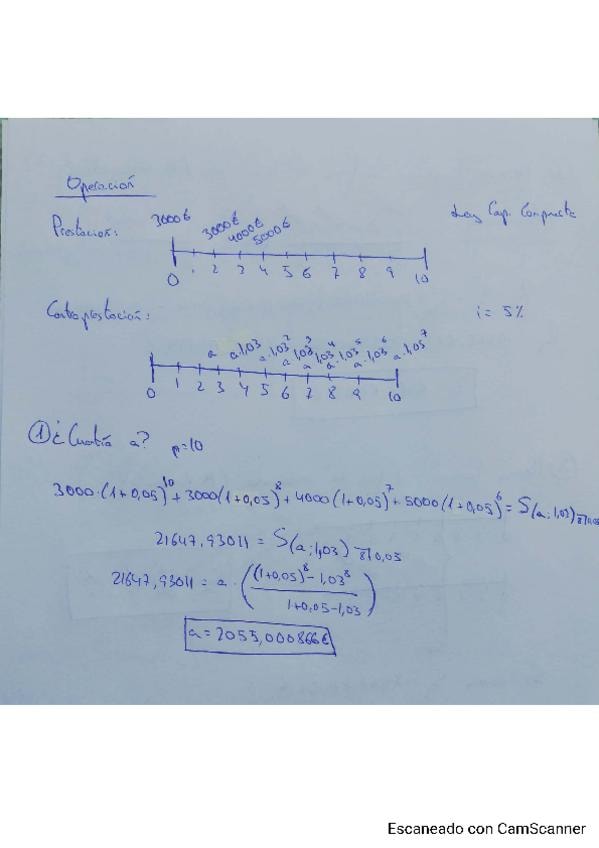 Operación
Prestación: 3000€ 3000€ 4000€ 5000€ Ley Cap. Compuesta
0 1 2 3 4 5 6 7 8 9 10
Contraprestación: i = 5%
a a·1,03 a·1,03² a·1,03³ a·1,03⁴ a·1,03⁵ a·1,03⁶ a·1,03⁷
0 1 2 3 4 5 6 7 8 9 10
① ¿Cuantía a? p=10
3000·(1+0,05)¹⁰+3000(1+0,05)⁸+4000(1+0,05)⁷+5000(1+0,05)⁶=S(a;1,03)8̅|0,05
21647,93011 = S(a;1,03)8̅|0,05
21647,93011 = a·((1+0,05)⁸-1,03⁸ / 1+0,05-1,03)
a=2055,000866€
Escaneado con CamScanner